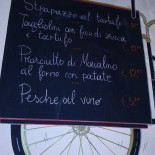 Strapazzo al tartufo
Tagliolini con fiori di zucca
e tartufo
Prosciutto di Maialino
al forno con patate
Pesche al vino